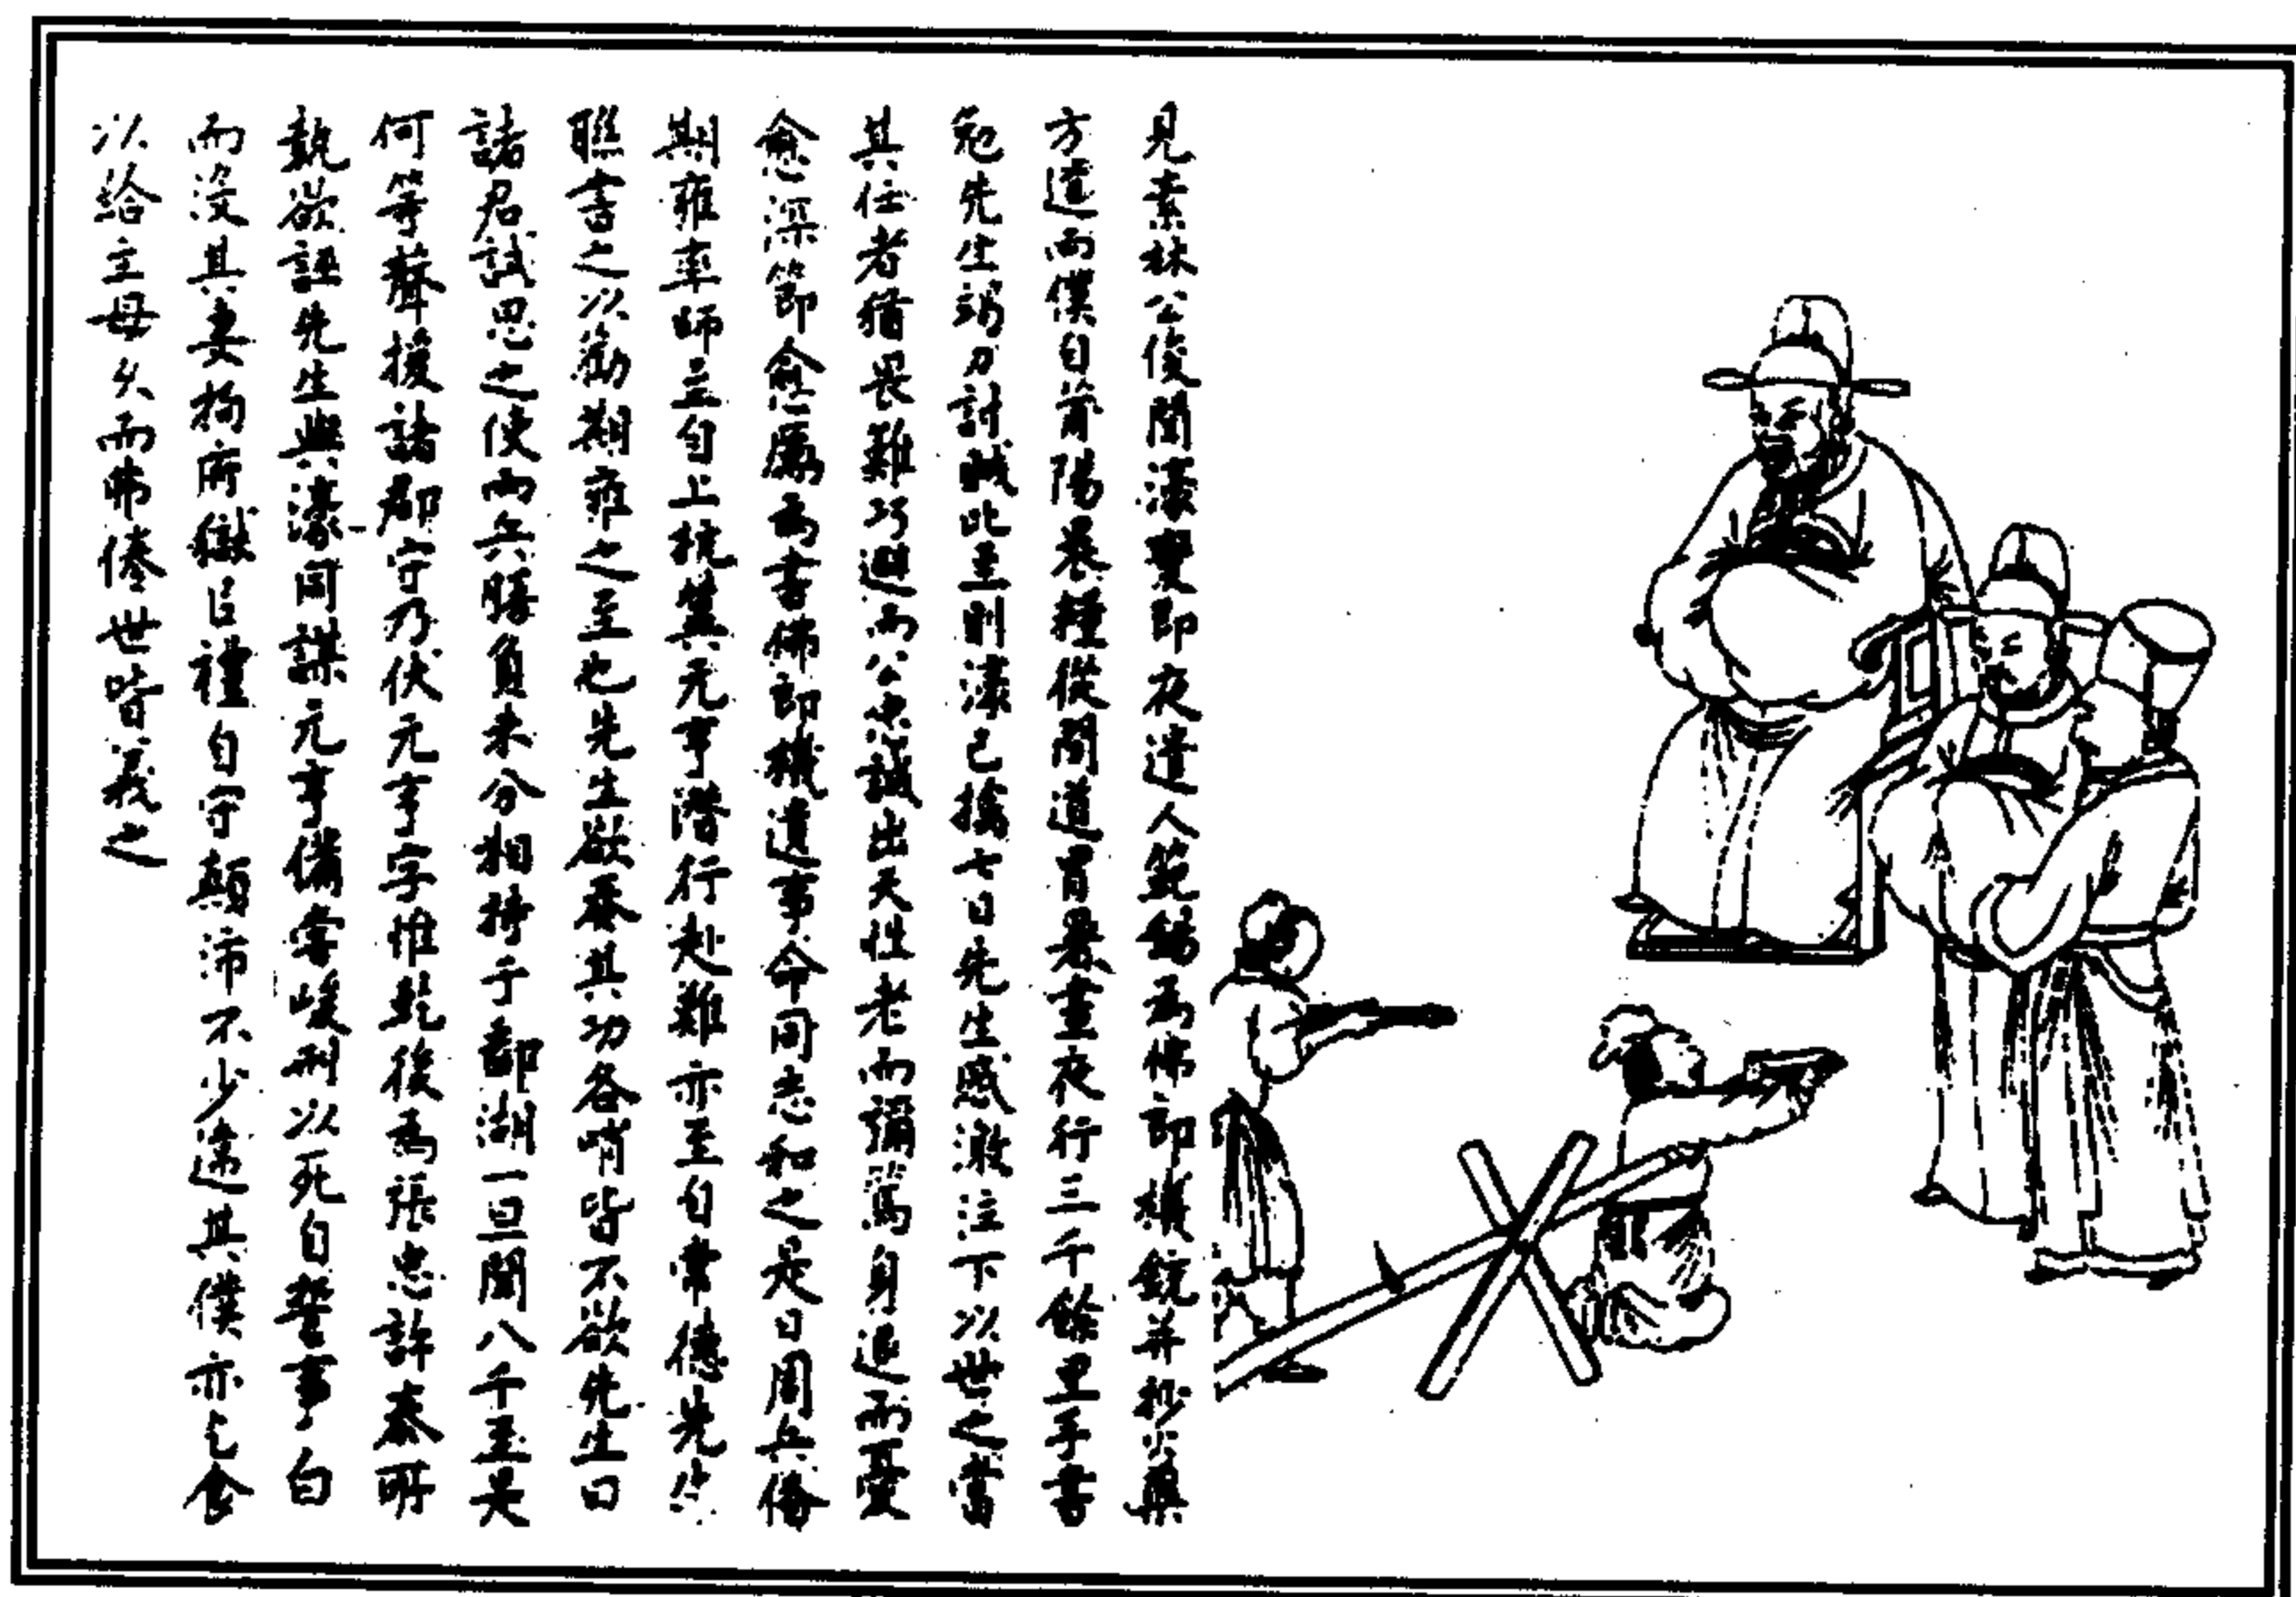 見素林公俊聞濠變即夜遣人範錫為佛郎機銃并抄火藥
方遣兩僕自莆陽裹糧從間道冒暑晝夜行三千餘里手書
勉先生竭力討賊比至則濠已擒七日先生感激泣下以世之當
其任者猶畏難巧避而公忠誠出天性老而彌篤身退而憂
愈深節愈厲為書佛郎機遺事命同志和之是日周兵備
期雍率師至自上杭冀元亨潛行赴難亦至自常德先生
聯書之以勸期雍之至也先生欲奏其功各哨皆不欲先生曰
諸君試思之使兩兵勝負未分相持于鄱湖一旦聞八千至是
何等聲援諸郡守乃伏元亨字惟乾後為張忠許泰所
執欲誣先生與濠同謀元亨備嘗峻刑以死自誓事白
而沒其妻拘府獄以禮自守顛沛不少違其僕亦乞食
以給主母久而弗倦世皆義之